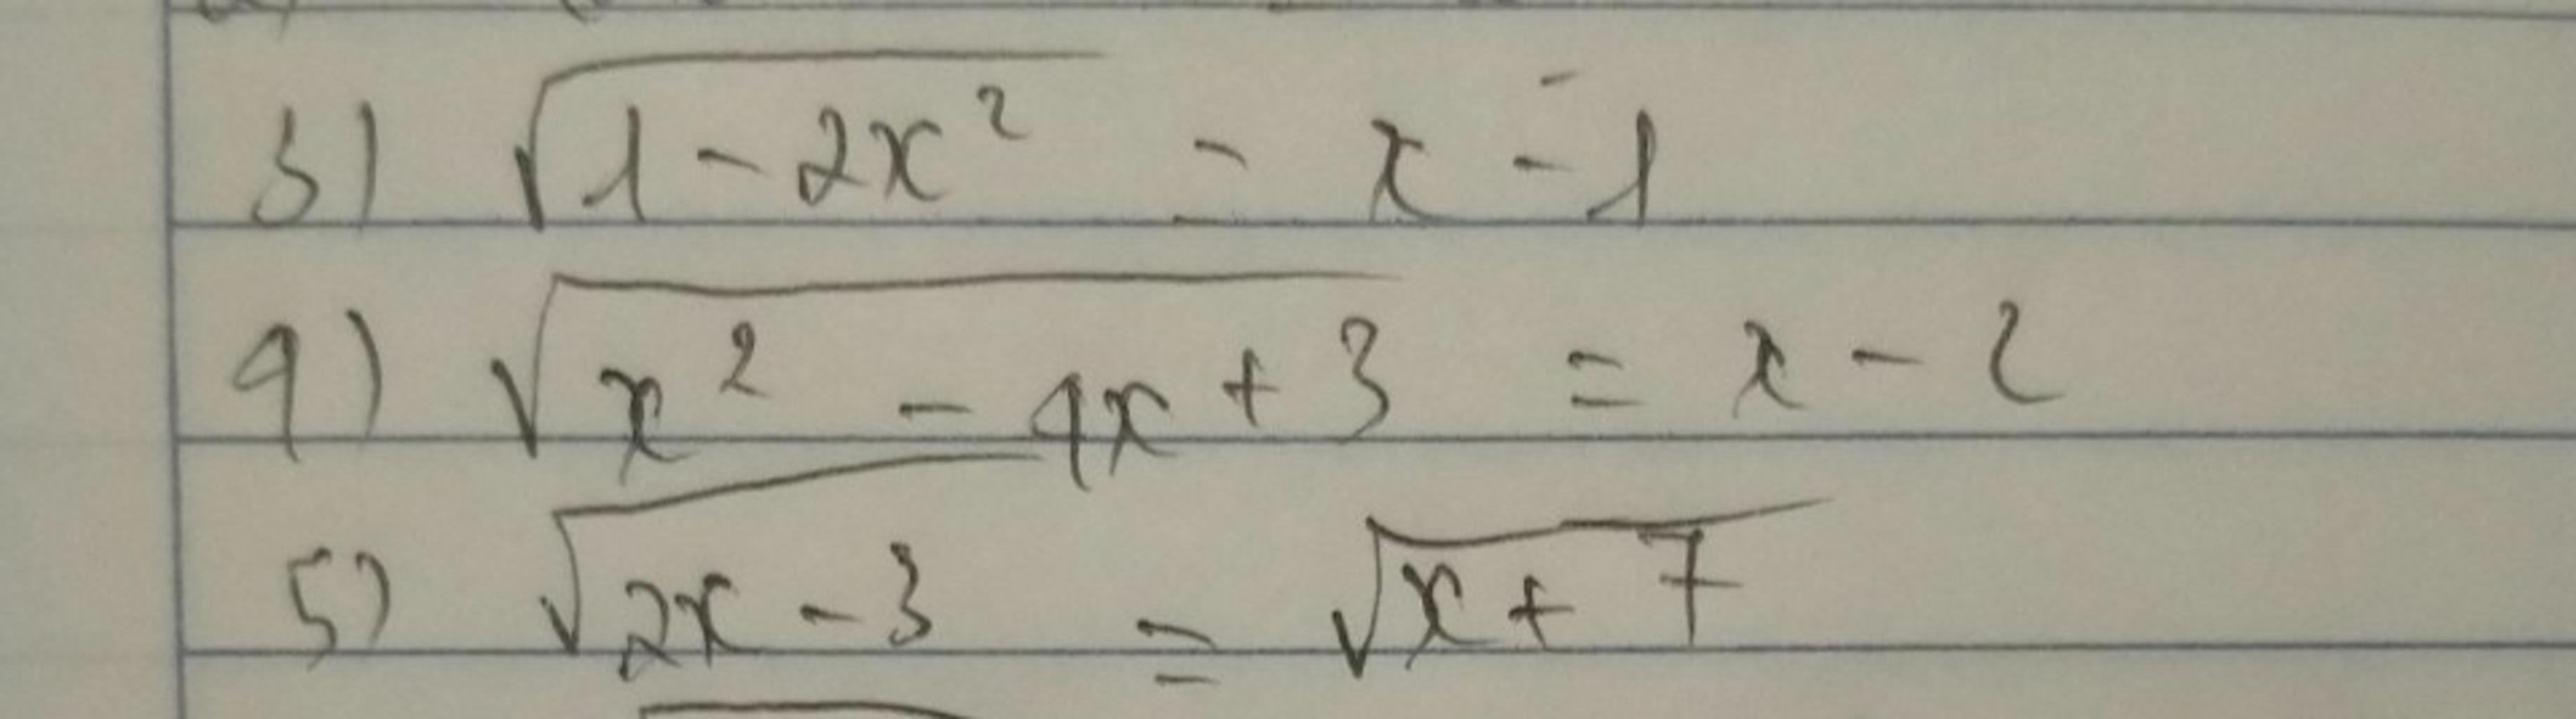 3) √(1 - 2x²) = x - 1
4) √(x² - 4x + 3) = x - 2
5) √(2x - 3) = √(x + 7)